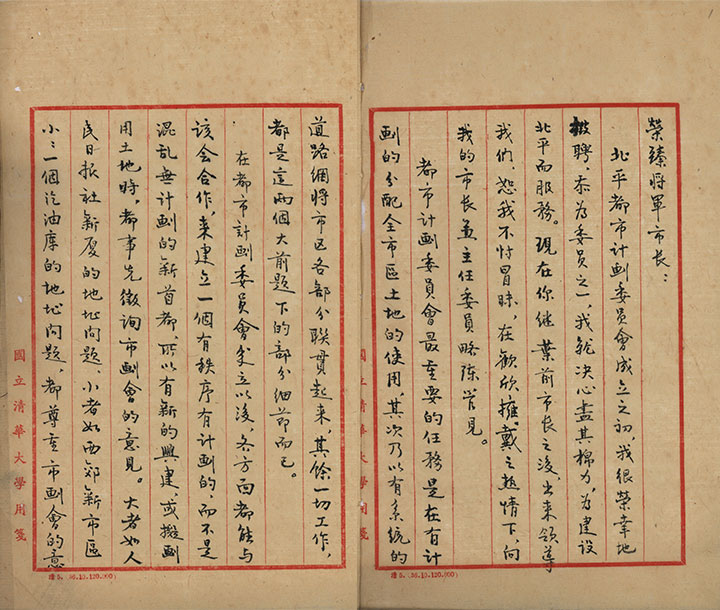 榮臻将軍市长：
北平都市計劃委員會成立之初，我很荣幸地
被聘忝为委员之一，我就决心盡其棉力，为建设
北平而服務。现在你继葉前市长之後，出来领导
我们，恕我不忖冒昧，在歡欣擁戴之热情下，向
我的市长兼主任委員略陈管見。
都市計劃委員會最重要的任務是在有計
劃的分配全市區土地的使用，其次乃以有系统的
國立清華大學用箋
道路網将市区各部分联貫起来，其餘一切工作，
都是這两個大前题下的部分细節而已。
在都市計劃委員會成立以後，各方面都能与
该会合作，来建立一個有秩序有计劃的，而不是
混乱無计劃的新首都，所以有新的興建，或擬劃
用土地时，都事先徵询市劃會的意见。大者如人
民日报社新厦的地址问题，小者如西郊新市區
小小一個汽油库的地址问题，都尊重市劃會的意
國立清華大學用箋
清5. (36.10.120.000)